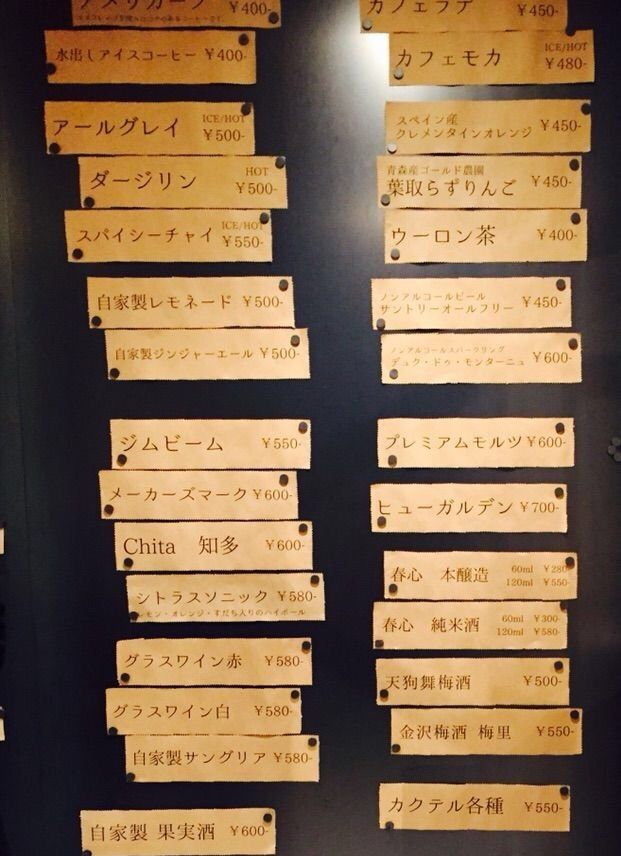 ¥400-
水出しアイスコーヒー ¥400-
アールグレイ ICE/HOT ¥500-
ダージリン HOT ¥500-
スパイシーチャイ ICE/HOT ¥550-
自家製レモネード ¥500-
自家製ジンジャーエール ¥500-
ジムビーム ¥550-
メーカーズマーク ¥600-
Chita 知多 ¥600-
シトラスソニック ¥580-
レモン・オレンジ・すだち入りのハイボール
グラスワイン赤 ¥580-
グラスワイン白 ¥580-
自家製サングリア ¥580-
自家製 果実酒 ¥600-
カフェラテ ¥450-
カフェモカ ICE/HOT ¥480-
スペイン産
クレメンタインオレンジ ¥450-
青森産ゴールド農園
葉取らずりんご ¥450-
ウーロン茶 ¥400-
ノンアルコールビール
サントリーオールフリー ¥450-
ノンアルコールスパークリング
デュク・ドゥ・モンターニュ ¥600-
プレミアムモルツ ¥600-
ヒューガルデン ¥700-
春心 本醸造 60ml ¥280-
120ml ¥550-
春心 純米酒 60ml ¥300-
120ml ¥580-
天狗舞梅酒 ¥500-
金沢梅酒 梅里 ¥550-
カクテル各種 ¥550-